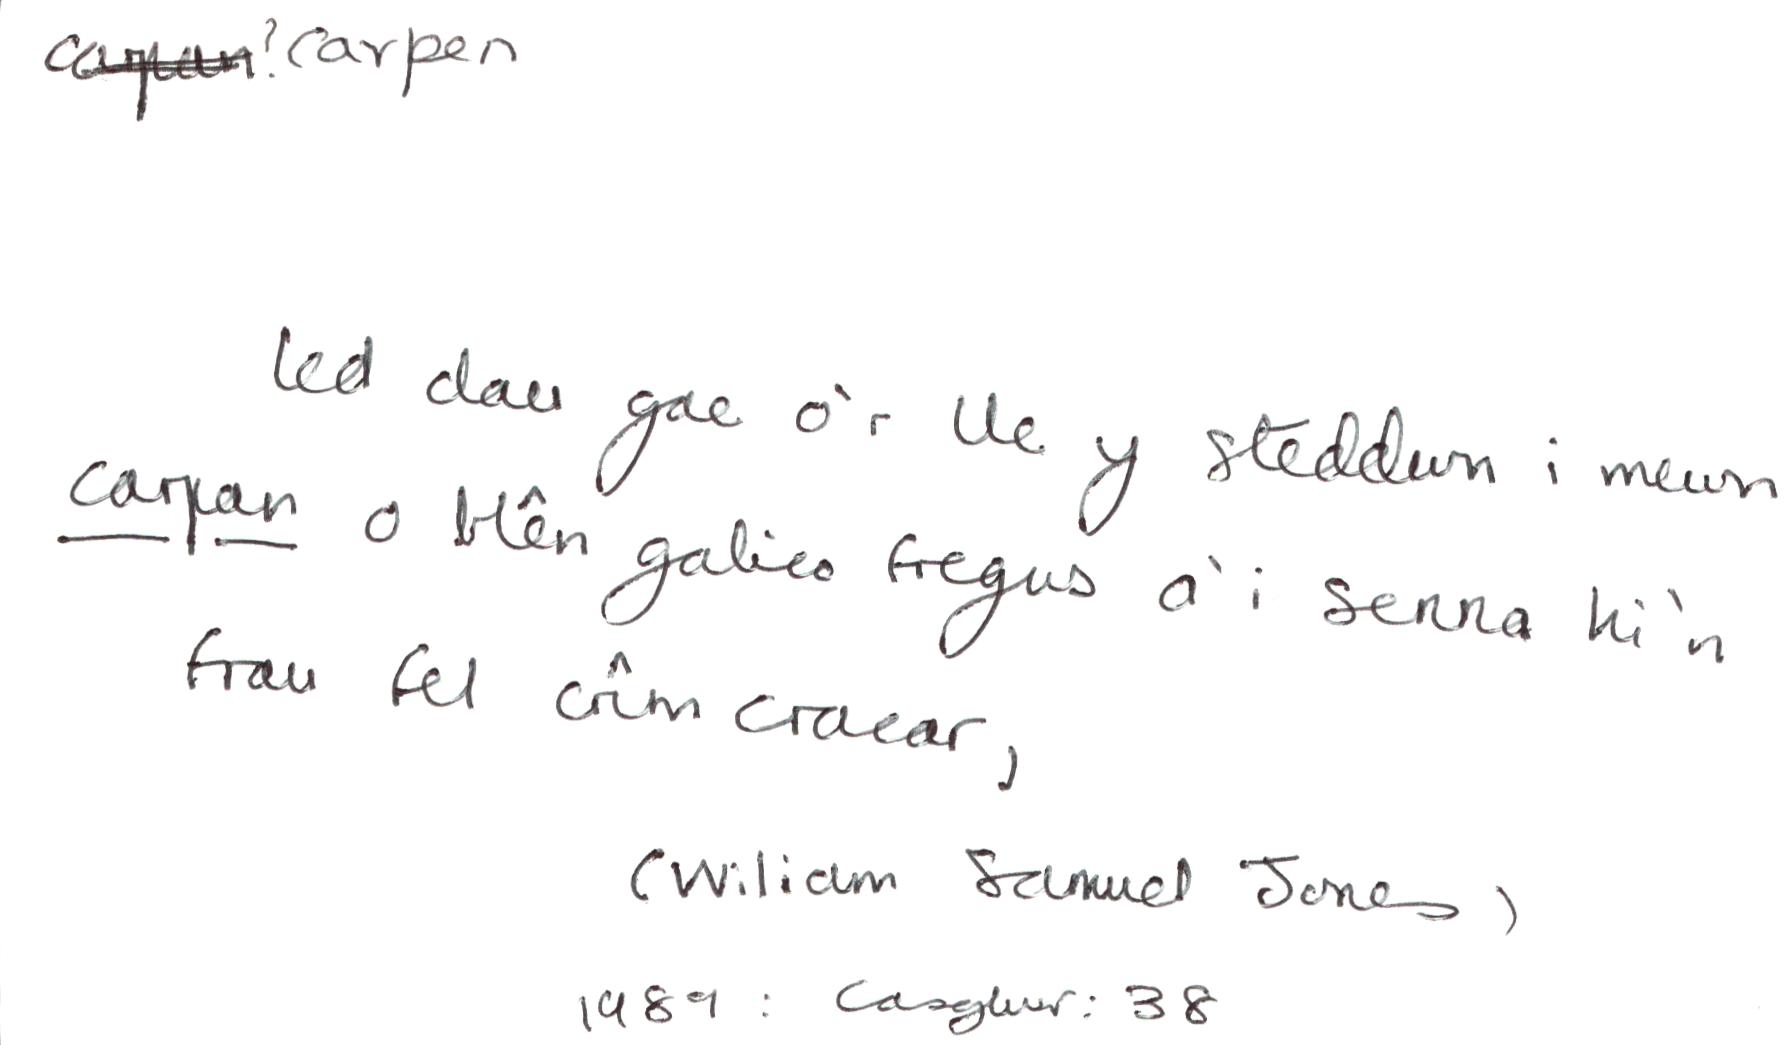 carpan? carpen
led dau gae o'r lle y steddwn i mewn
carpan o hên galico fregus a'i senna hi'n
frau fel crîm cracar,
(Wiliam Samuel Jones)
1989 : Casglwr: 38